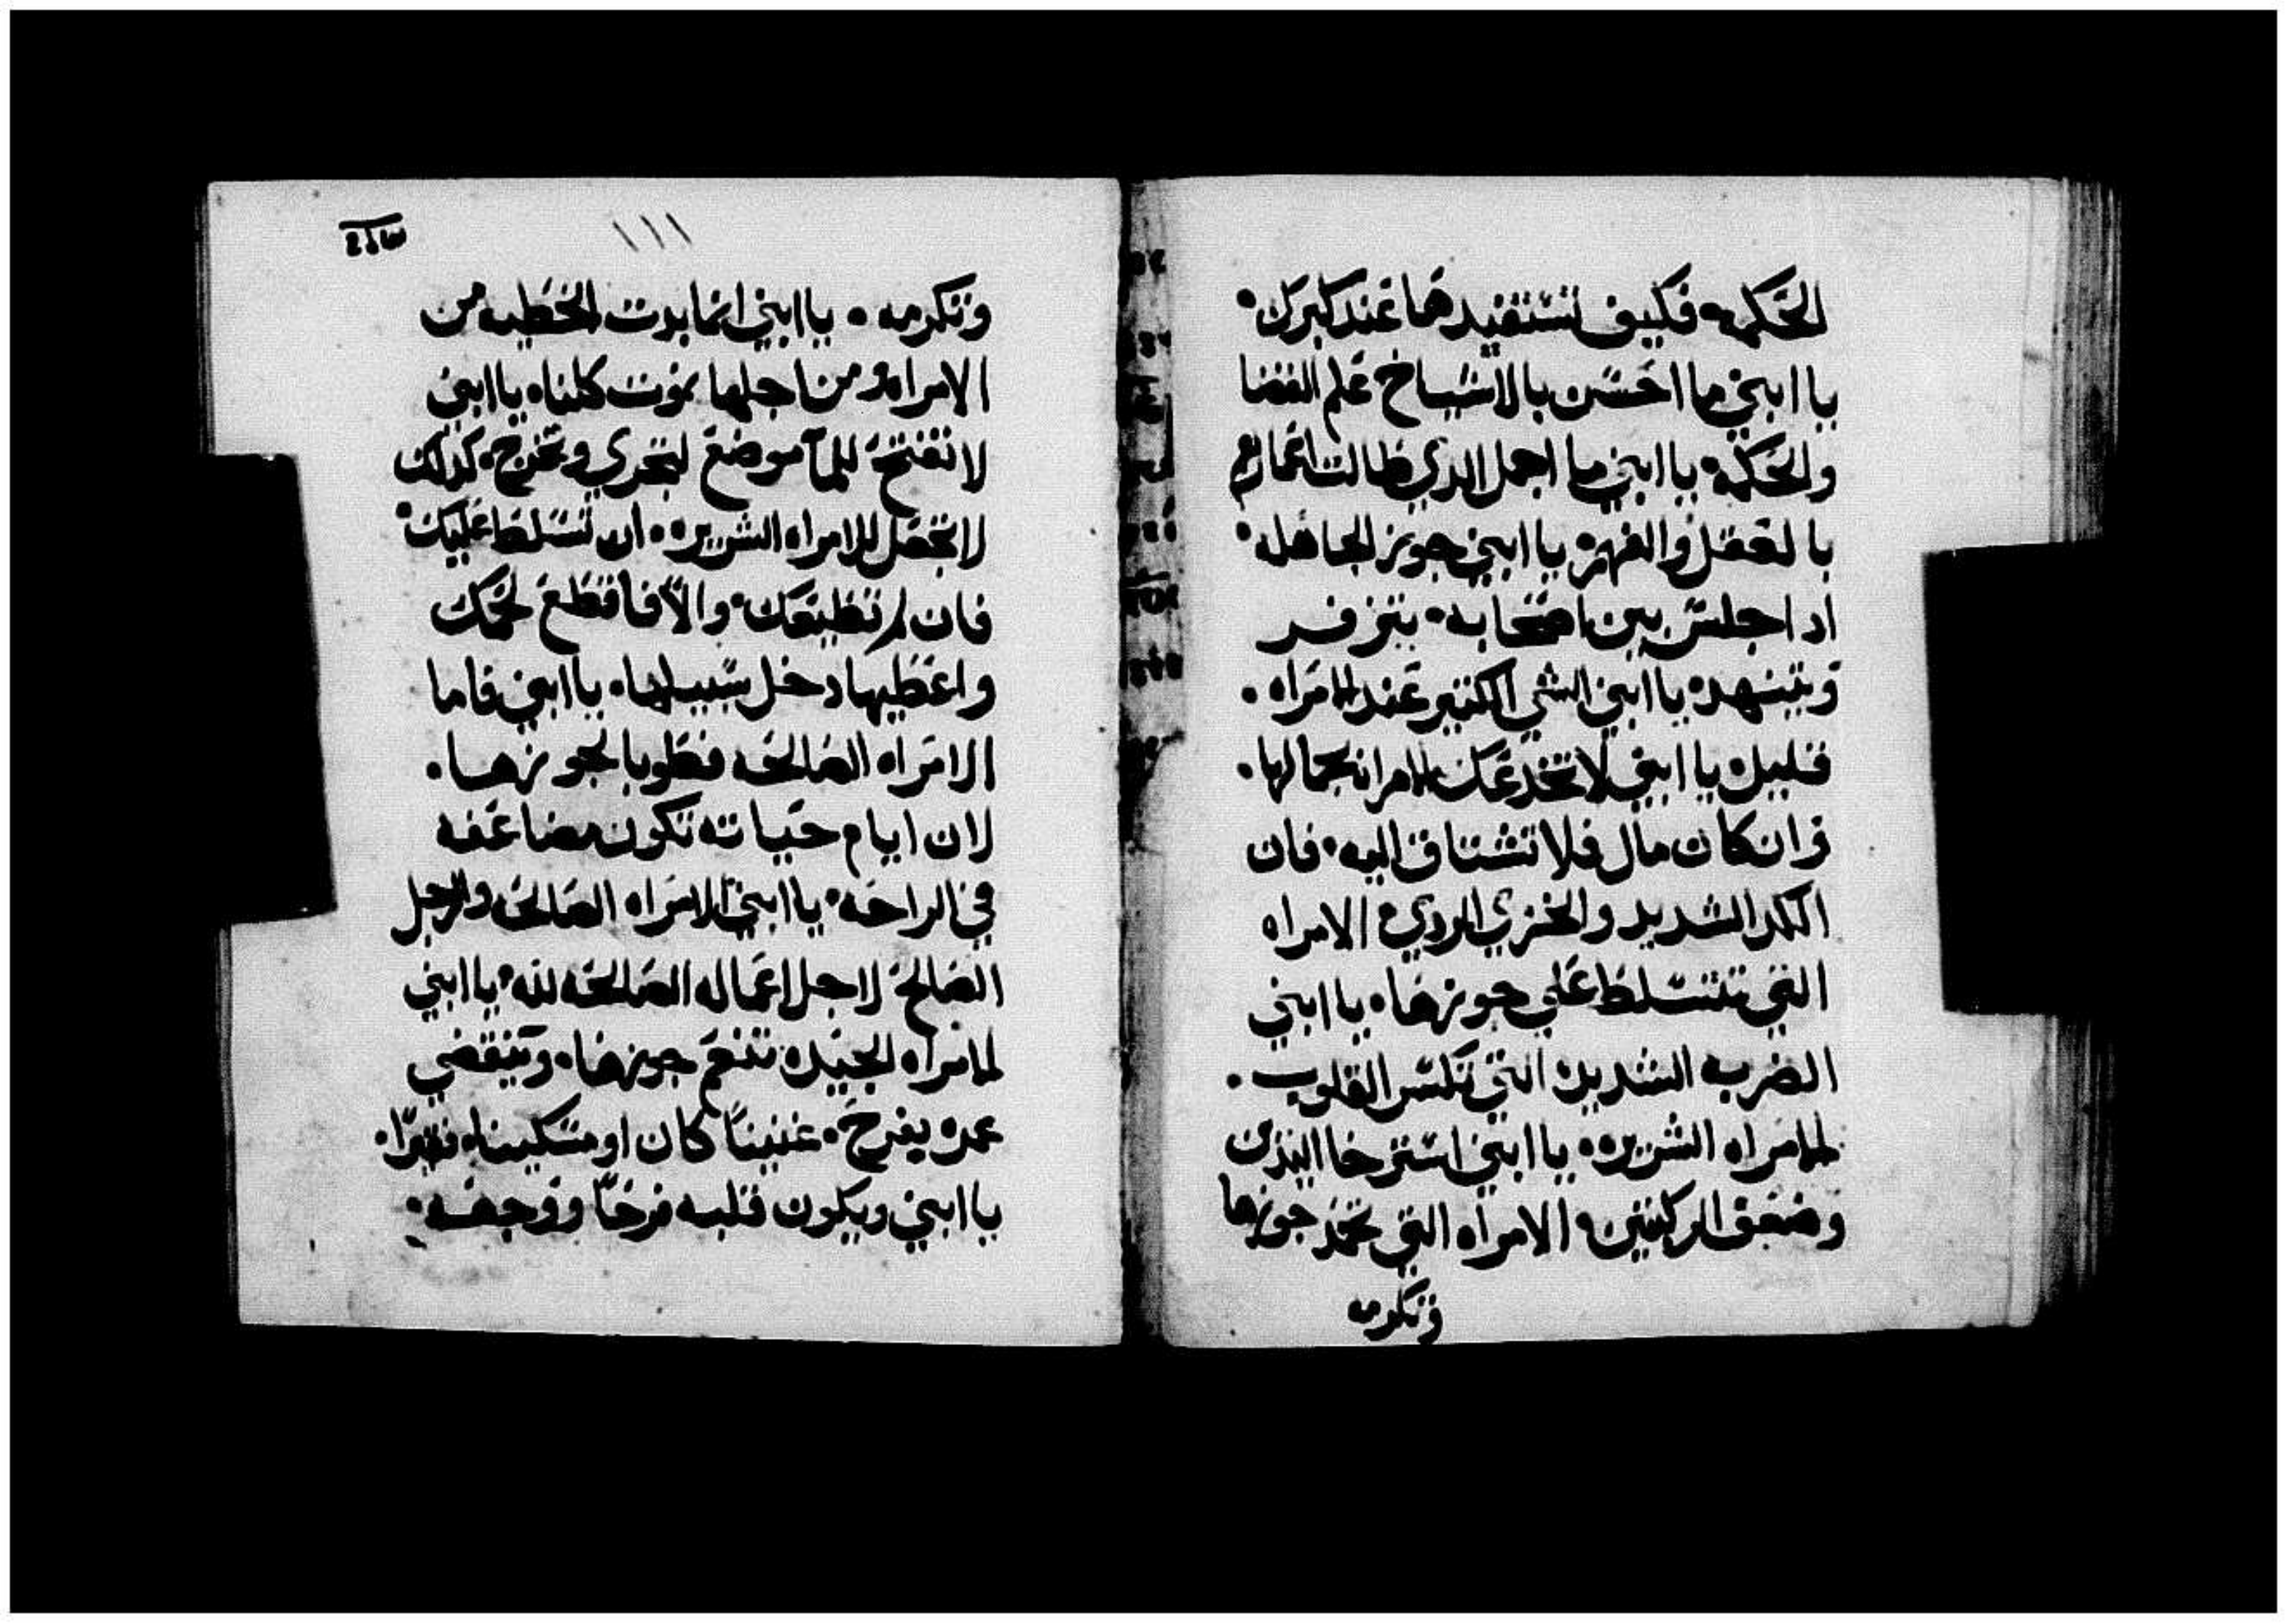 الحكمه فكيف تستفيدها عند كبرك.
يا ابني ما احسن بالاشياخ علم القضا
والحكمه يا ابني ما اجمل الدي طالت اعمارهم
بالعقل والفهم يا ابني جوز الجاهله.
ادا جلس بين اصحابه. يتزفر
ويتنهد يا ابني الشي الكتير عند الامراه.
قليل يا ابني لا تخدعك الامراه بجمالها.
وان كان مال فلا تشتاق اليه. فان
الكد الشديد والخزي الردي الامراه
التي تتسلط علي جوزها. يا ابني
الضربه الشديده التي تكسر القلوب.
الامراه الشريره. يا ابني استرخا اليدين
وضعف الركبتين. الامراه التي تحمد جوزها
وتكرمه
١١١
وتكرمه. يا ابني انما بدت الخطيه من
الامراه ومن اجلها نموت كلنا. يا ابني
لا تفتح للمآ موضع لتجري وتخرج. كدلك
لا تجعل للامراه الشريره. ان تتسلط عليك.
فان لم تطيعك. والّا فاقطع لحمك
واعطيها دخل سبيلها. يا ابني فاما
الامراه الصالحه فطوبا لجوزها.
لان ايام حياته تكون مضاعفه
في الراحه. يا ابني الامراه الصالحه والرجل
الصالح لاجل اعماله الصالحه لله. يا ابني
الامراه الجيده تنعم جوزها. وتنقضي
عمره بفرح. غنيناً كان او مسكينا. فقيرًا.
يا ابني ويكون قلبه فرحًا ووجهه.